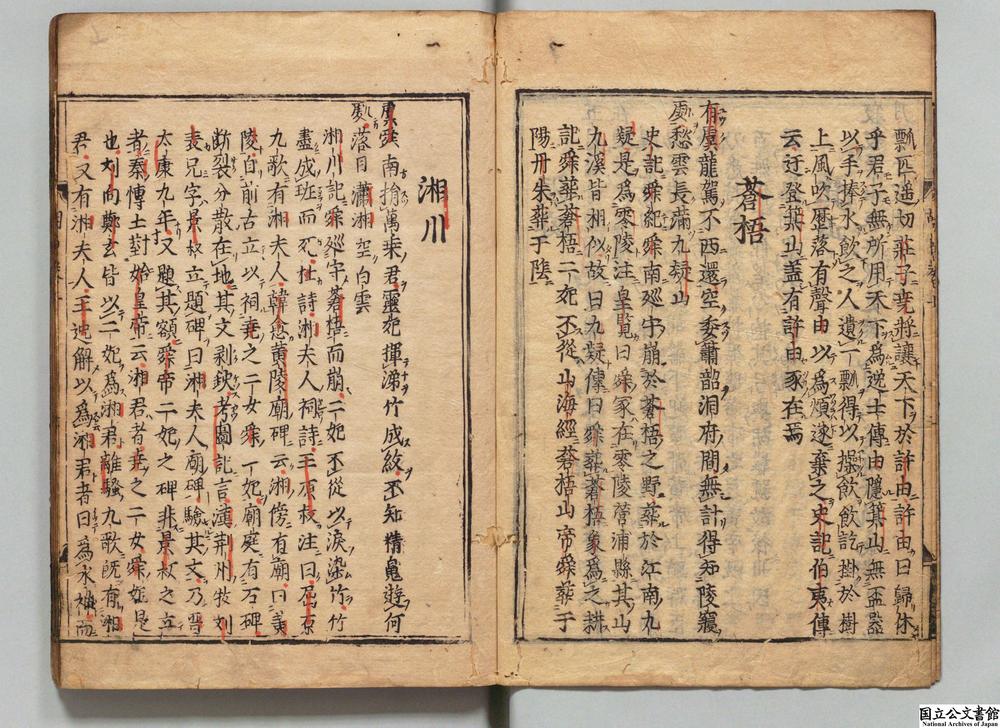 瓢匹遥切莊子尭將讓天下於許由許由曰歸休
乎君子無所用天下爲逸士傳由隱箕山無盃器
以手捧水飲之人遺一瓢得以操飲飲訖掛於樹
上風吹歴落有聲由以爲煩遂棄之史記伯夷傳
云迂登箕山盖有許由冢在焉
蒼梧
有虞龍駕不西還空委蕭韶洞府間無計得知陵寢
處愁雲長滿九疑山
史記舜紀舜南廵守崩於蒼梧之野葬於江南九
疑是爲零陵注皇覧曰舜冢在零陵營浦縣其山
九溪皆相似故曰九疑傳曰舜葬蒼梧象爲之耕
記舜葬蒼梧二妃不從山海經蒼梧山帝舜葬于
陽丹朱葬于陰
湘川
虞舜南捐萬乗君靈妃揮涕竹成紋不知精鬼遊何
處落日瀟湘空白雲
湘川記舜廵守蒼梧而崩二妃不從以淚染竹竹
盡成班而死杜詩湘夫人祠詩王原枝注曰屈原
九歌有湘夫人韓愈黄陵廟碑云湘傍有廟曰黄
陵自前古立以祠堯之二女舜二妃廟庭有石碑
断裂分散在地其文剥缺考圖記言漢荆州牧刘
表兄字景升立題碑曰湘夫人廟碑驗其文乃晋
太康九年又題其額舜帝二妃之碑非景升之立
者秦博士對始皇帝云湘君者尭之二女舜妃是
也刘向鄭玄皆以二妃爲湘君離騷九歌既有湘
君又有湘夫人王逸解以爲湘君者曰爲水神而
国立公文書館
National Archives of Japan